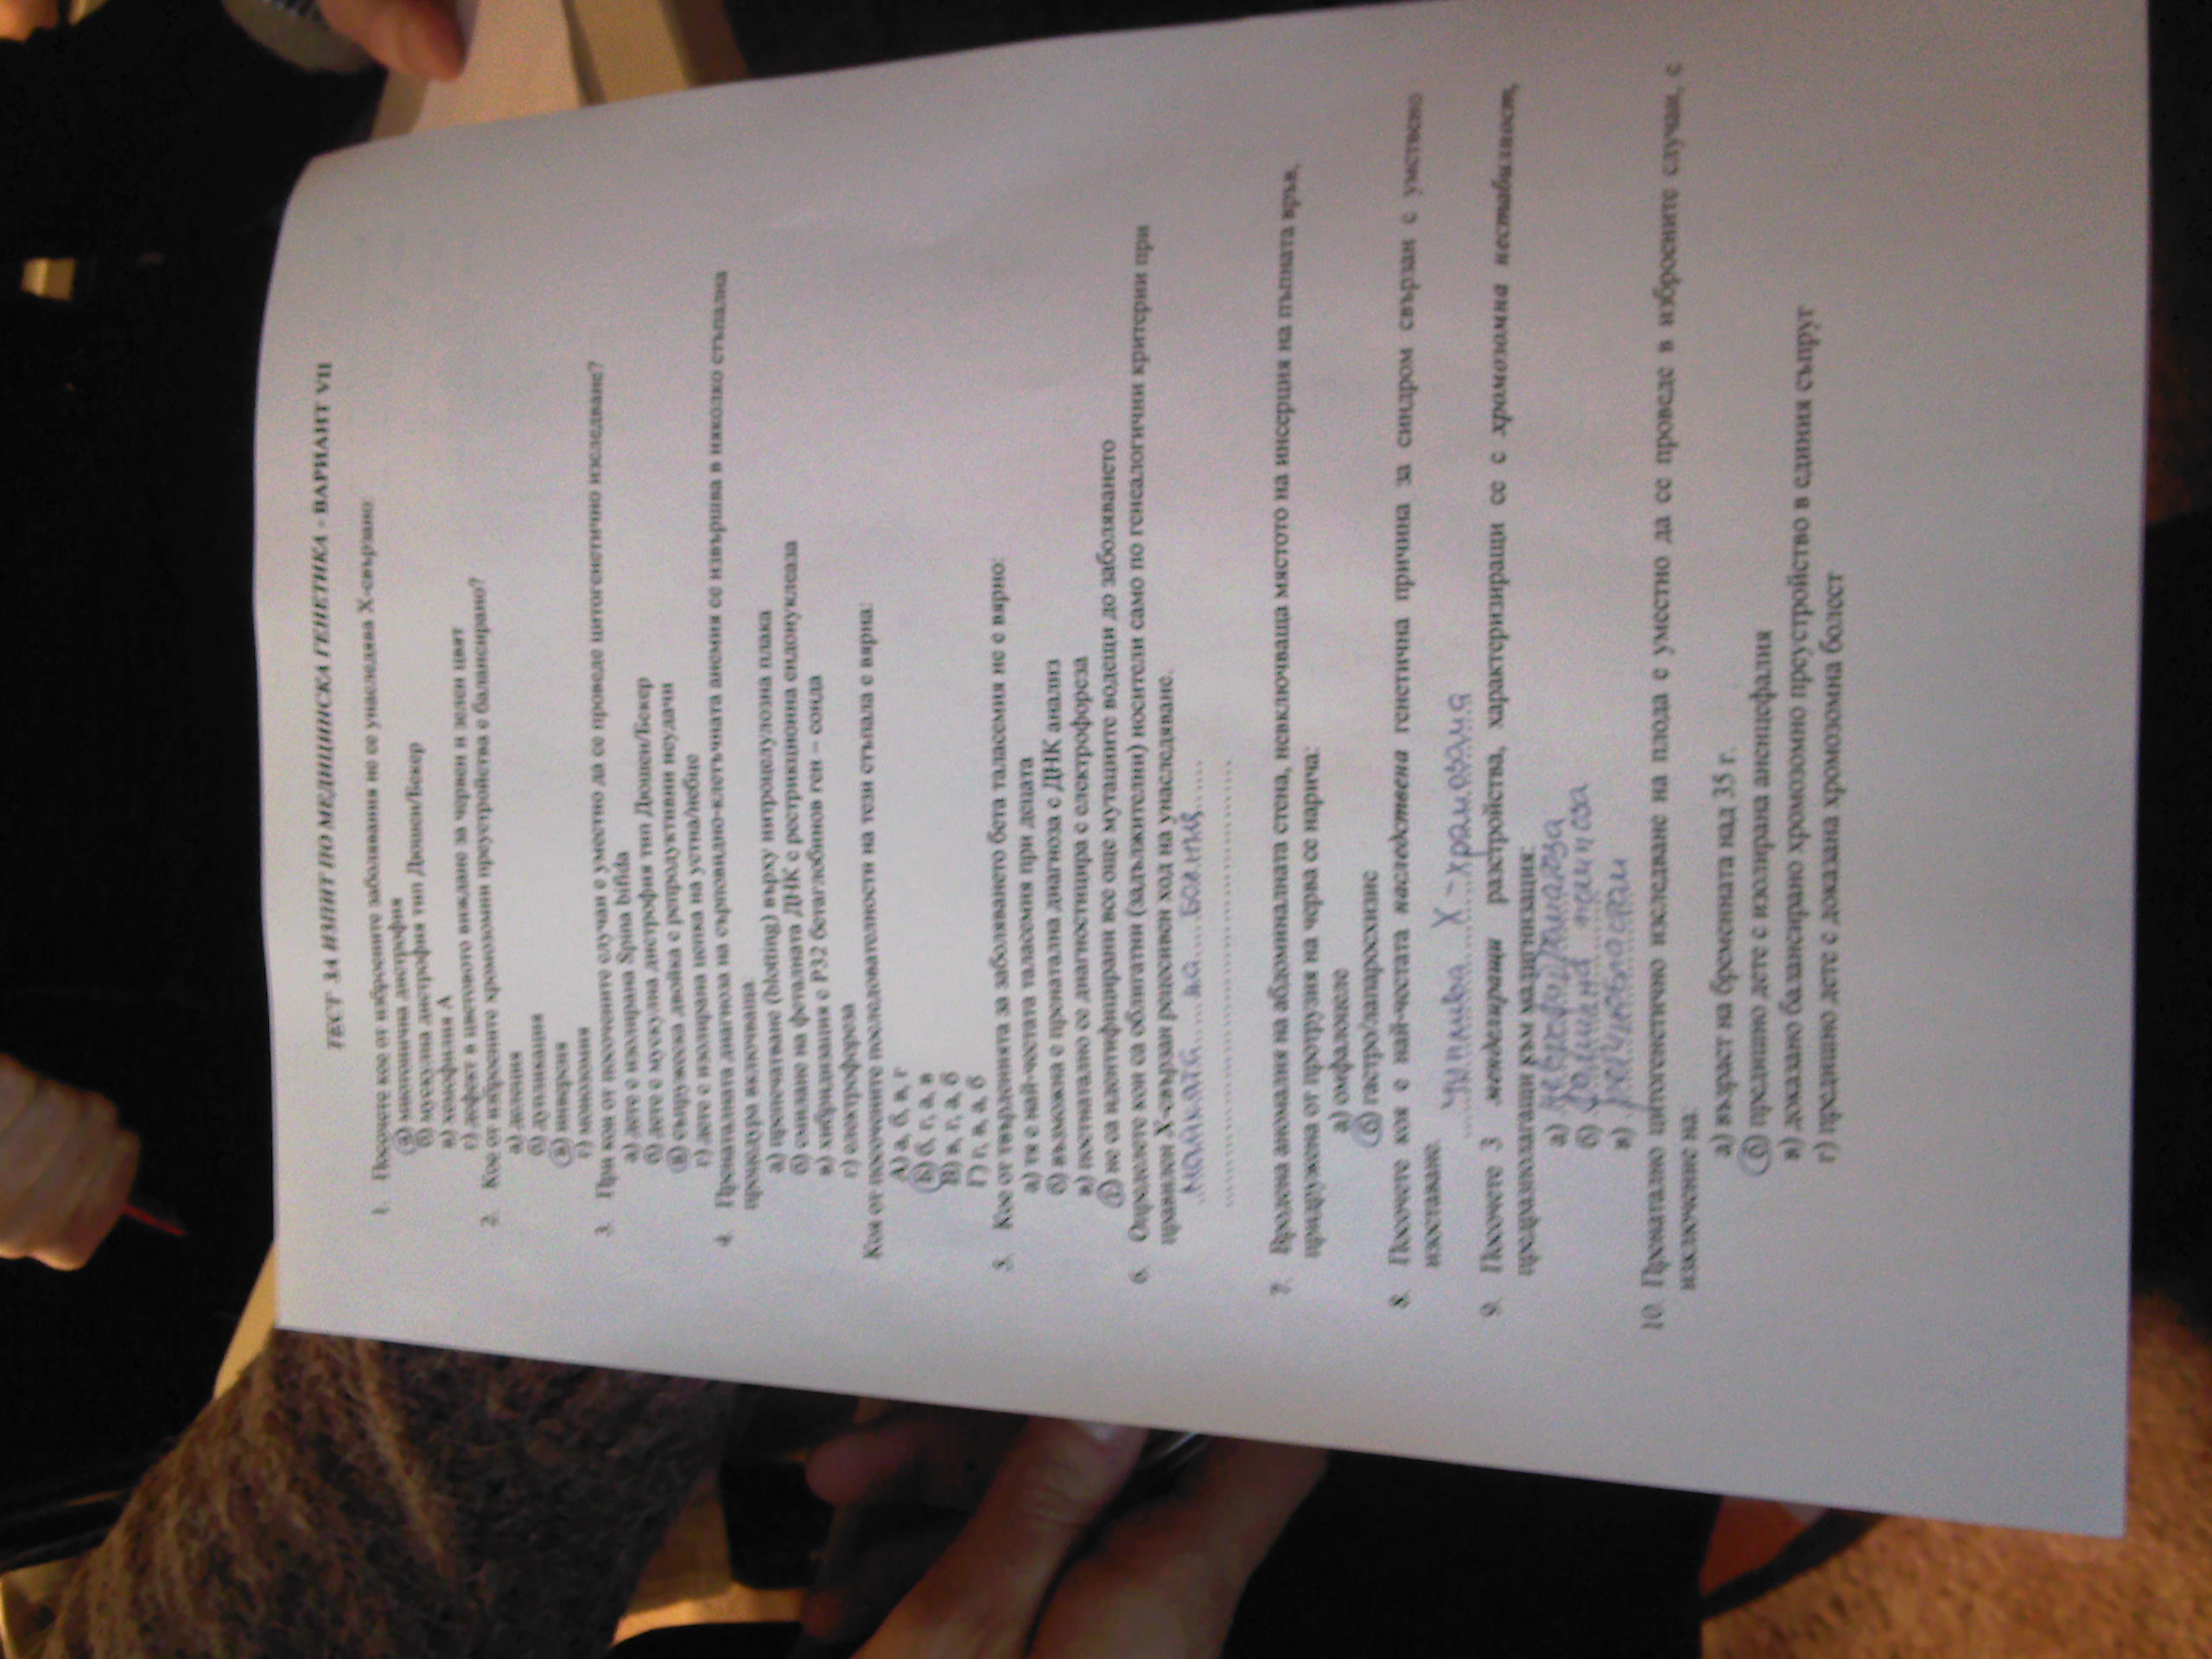 ТЕСТ ЗА ИЗПИТ ПО МЕДИЦИНСКА ГЕНЕТИКА - ВАРИАНТ VII
1. Посочете кое от изброените заболявания не се унаследява Х-свързано:
а) миотонична дистрофия
б) мускулна дистрофия тип Дюшен/Бекер
в) хемофилия А
г) дефект в цветовото виждане за червен и зелен цвят
2. Кое от изброените хромозомни преустройства е балансирано?
а) делеция
б) дупликация
в) инверсия
г) монозомия
3. При кои от посочените случаи е уместно да се проведе цитогенетично изследване?
а) дете с изолирана Spina bifida
б) дете с мускулна дистрофия тип Дюшен/Бекер
в) съпружеска двойка с репродуктивни неудачи
г) дете с изолирана цепка на устна/небце
4. Пренаталната диагноза на сърповидно-клетъчната анемия се извършва в няколко стъпална
процедура включваща:
а) препечатване (blotting) върху нитроцелулозна плака
б) смилане на феталната ДНК с рестрикционна ендонуклеаза
в) хибридизация с Р32 бетаглобинов ген – сонда
г) електрофореза
Коя от посочените последователности на тези стъпала е вярна:
А) а, б, в, г
Б) б, г, а, в
В) в, г, а, б
Г) г, в, а, б
5. Кое от твърденията за заболяването бета таласемия не е вярно:
а) тя е най-честата таласемия при децата
б) възможна е пренатална диагноза с ДНК анализ
в) постнатално се диагностицира с електрофореза
г) не са идентифицирани все още мутациите водещи до заболяването
6. Определете кои са облигатни (задължителни) носители само по генеалогични критерии при
правилен Х-свързан рецесивен ход на унаследяване.
майката на болния
7. Вродена аномалия на абдоминалната стена, невключваща мястото на инсерция на пъпната връв,
придружена от протрузия на черва се нарича:
а) омфалоцеле
б) гастро/лапаросхизис
8. Посочете коя е най-честата наследствена генетична причина за синдром свързан с умствено
изоставане. Чуплива Х-хромозома
9. Посочете 3 менделиращи разстройства, характеризиращи се с хромозомна нестабилност,
предразполагащи към малигнизация:
а)
б)
в)
10. Пренатално цитогенетично изследване на плода е уместно да се проведе в изброените случаи, с
изключение на:
а) възраст на бременната над 35 г.
б) предишно дете с изолирана аненцефалия
в) доказано балансирано хромозомно преустройство в единия съпруг
г) предишно дете с доказана хромозомна болест